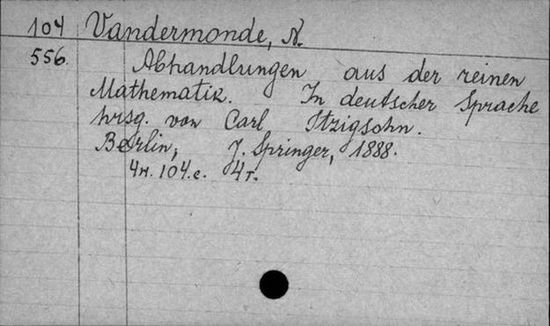 104 Vandermonde, N.
556. Abhandlungen aus der reinen
Mathematik. In deutscher Sprache
hrsg. von Carl Itzigsohn.
Berlin, J. Springer, 1888.
4н. 104.с. 4т.